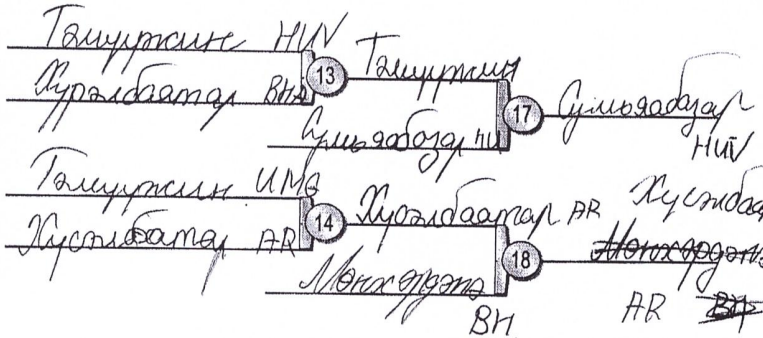 Тэмүүжин HUV
Хүрэлбаатар BHA
13
Тэмүүжин
Сумъяабазар HU
17
Сумъяабазар
HUV
Тэмүүжин UMG
Хүсэлбаатар AR
14
Хүсэлбаатар AR
Мөнхэрдэнэ
BH
18
Хүсэлбаа
Мөнхэрдэнэ
AR BH